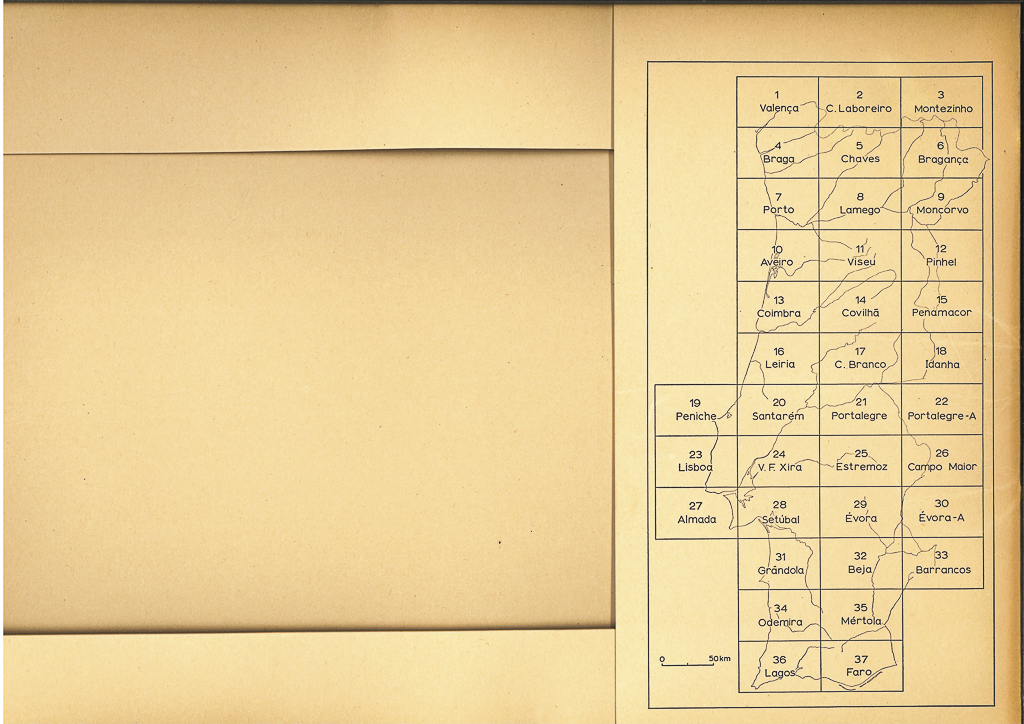 1
Valença
2
C. Laboreiro
3
Montezinho
4
Braga
5
Chaves
6
Bragança
7
Porto
8
Lamego
9
Moncorvo
10
Aveiro
11
Viseu
12
Pinhel
13
Coimbra
14
Covilhã
15
Penamacor
16
Leiria
17
C. Branco
18
Idanha
19
Peniche
20
Santarém
21
Portalegre
22
Portalegre-A
23
Lisboa
24
V. F. Xira
25
Estremoz
26
Campo Maior
27
Almada
28
Setúbal
29
Évora
30
Évora-A
31
Grândola
32
Beja
33
Barrancos
34
Odemira
35
Mértola
36
Lagos
37
Faro
0 50km